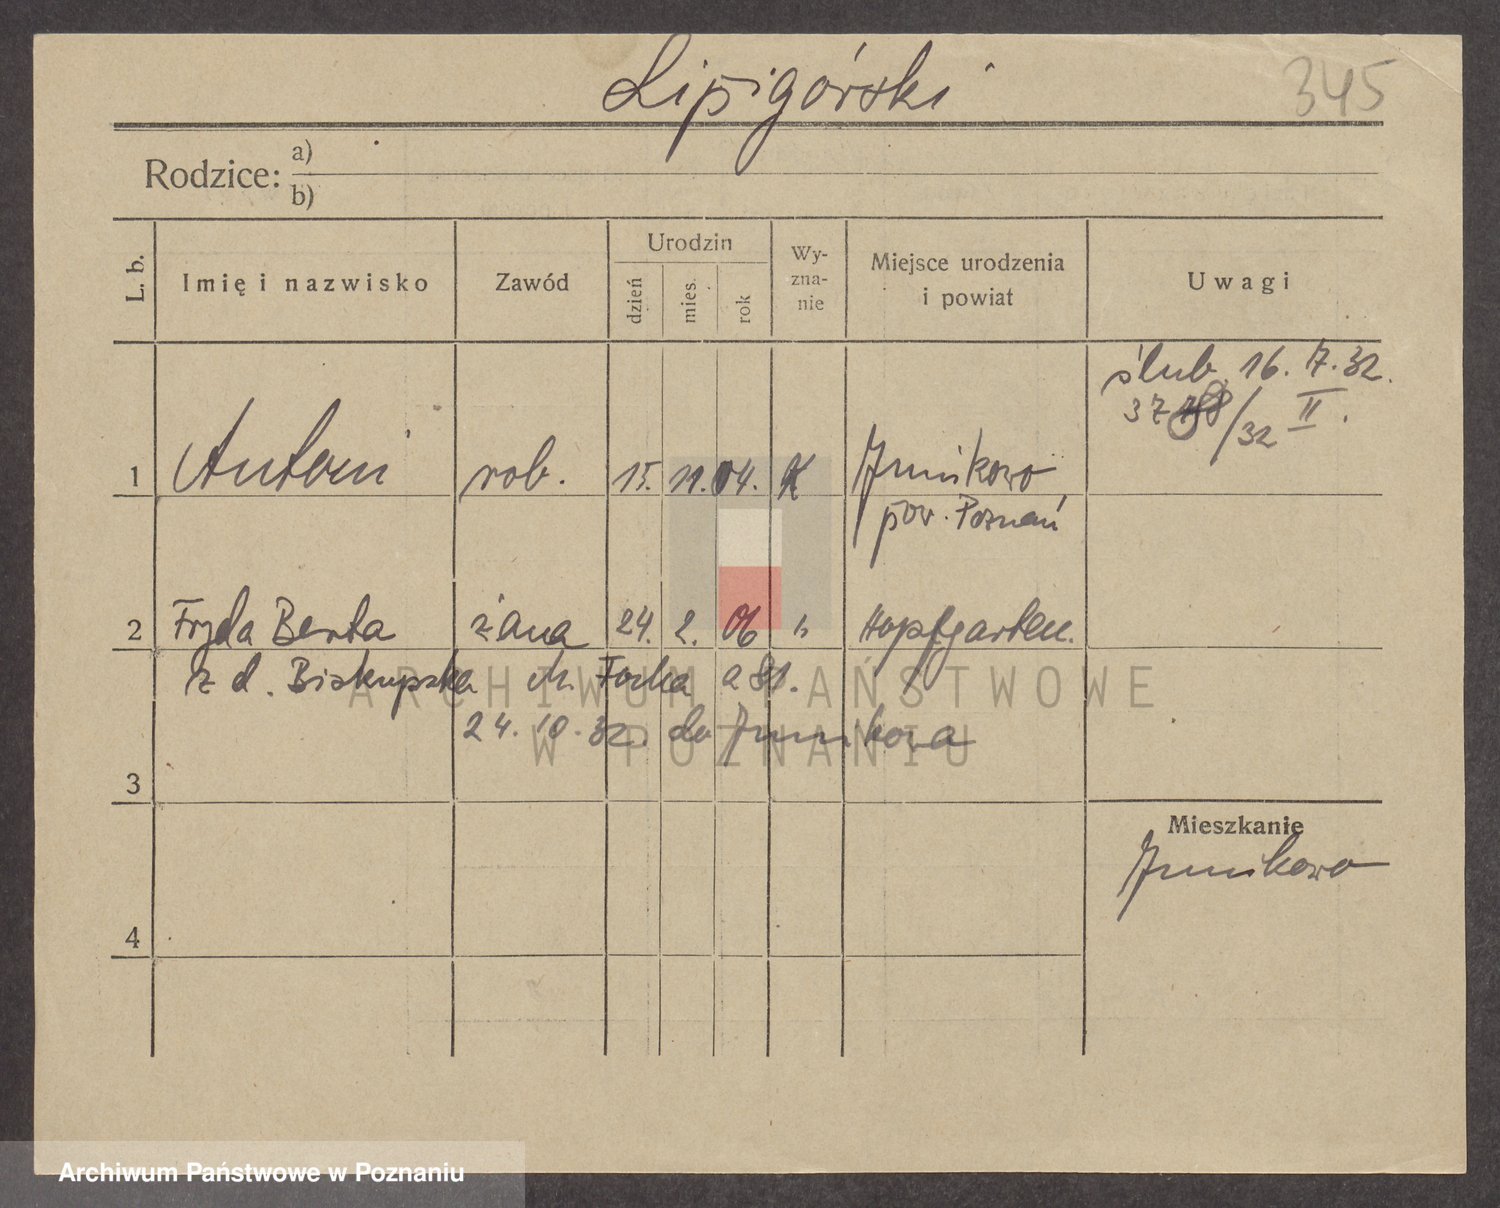 Lipigórski
345
Rodzice: a)
b)
L. b.
Imię i nazwisko
Zawód
Urodzin
dzień
mies.
rok
Wy-
zna-
nie
Miejsce urodzenia
i powiat
Uwagi
ślub. 16. 7. 32.
37 /32 II.
1 Antoni rob. 15. 11. 04. K Junikowo
pow. Poznań
2 Fryda Berta żona 24. 2. 06 " Hopfgarten.
z d. Biskupska
24. 10. 32. do Junikowa
3
4
Mieszkanie
Junikowo
ARCHIWUM PAŃSTWOWE
W POZNANIU
Archiwum Państwowe w Poznaniu